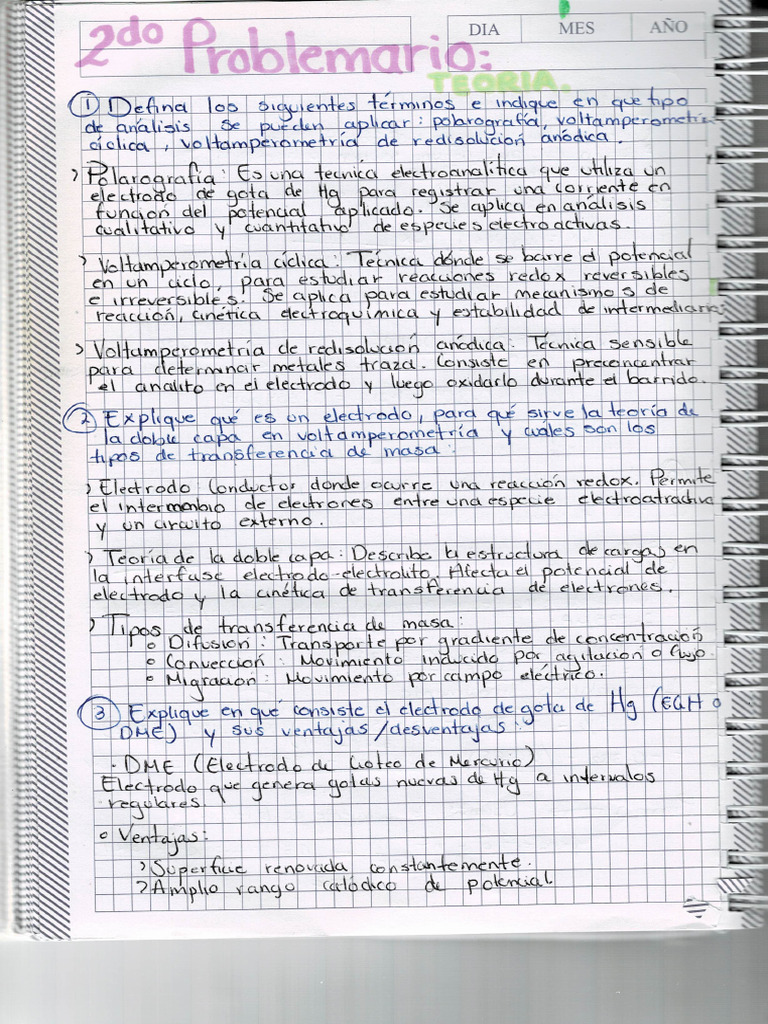 DIA MES AÑO
2do Problemario:
TEORIA.
① Defina los siguientes términos e indique en que tipo
de análisis se pueden aplicar: polarografía, voltamperometría
cíclica, voltamperometría de redisolución anódica.
> Polarografía: Es una tecnica electroanalítica que utiliza un
electrodo de gota de Hg para registrar una corriente en
función del potencial aplicado. Se aplica en análisis
cualitativo y cuantitativo de especies electroactivas.
> Voltamperometría cíclica: Tecnica donde se barre el potencial
en un ciclo, para estudiar reacciones redox reversibles
e irreversibles. Se aplica para estudiar mecanismos de
reacción, cinética electroquímica y estabilidad de intermediarios
> Voltamperometría de redisolución anódica: Técnica sensible
para determinar metales traza. Consiste en preconcentrar
el analito en el electrodo y luego oxidarlo durante el barrido.
② Explique qué es un electrodo, para qué sirve la teoría de
la doble capa en voltamperometría y cuáles son los
tipos de transferencia de masa:
> Electrodo Conductor donde ocurre una reacción redox. Permite
el intercambio de electrones entre una especie electroatractiva
y un circuito externo.
> Teoría de la doble capa: Describe la estructura de cargas en
la interfase electrodo-electrolito. Afecta el potencial de
electrodo y la cinética de transferencia de electrones.
> Tipos de transferencia de masa:
o Difusión: Transporte por gradiente de concentración
o Convección: Movimiento inducido por agitación o flujo.
o Migración: Movimiento por campo eléctrico.
③ Explique en qué consiste el electrodo de gota de Hg (EGH o
DME) y sus ventajas/desventajas:
· DME (Electrodo de Goteo de Mercurio)
Electrodo que genera gotas nuevas de Hg a intervalos
regulares
o Ventajas:
> Superficie renovada constantemente.
> Amplio rango catódico de potencial